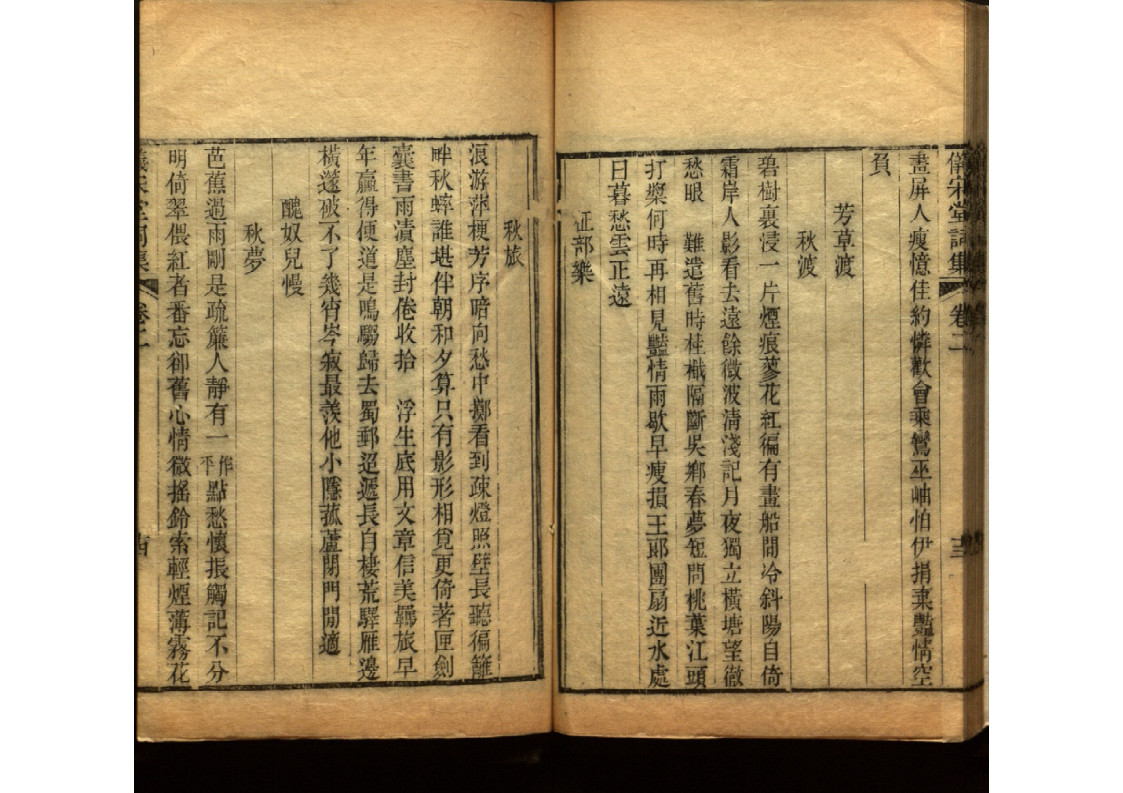 儀宋堂詞集　卷二
畫屏人瘦憶佳約憐歡會乘鸞巫岫怕伊捐棄豔情空
負
芳草渡
秋波
碧樹裏浸一片煙痕蓼花紅徧有畫船閒冷斜陽自倚
霜岸人影看去遠餘微波清淺記月夜獨立橫塘望微
愁眼　難遣舊時桂檝隔斷吳鄉春夢短問桃葉江頭
打槳何時再相見豔情雨歇早瘦損王郎團扇近水處
日暮愁雲正遠
征部樂
秋旅
浪游萍梗芳序暗向愁中擲看到疎燈照壁長聽徧籬
畔秋蟀誰堪伴朝和夕算只有影形相覓更倚著匣劍
囊書雨漬塵封倦收拾　浮生底用文章信美羈旅早
年贏得便道是鳴騶歸去蜀郵迢遞長自棲荒驛雁邊
橫邃破不了幾宵岑寂最羨他小隱菰蘆閉門閒適
醜奴兒慢
秋夢
芭蕉過雨剛是疏簾人靜有一作平點愁懷振觸記不分
明倚翠偎紅者番忘卻舊心情微搖鈴索輕煙薄霧花
卷二